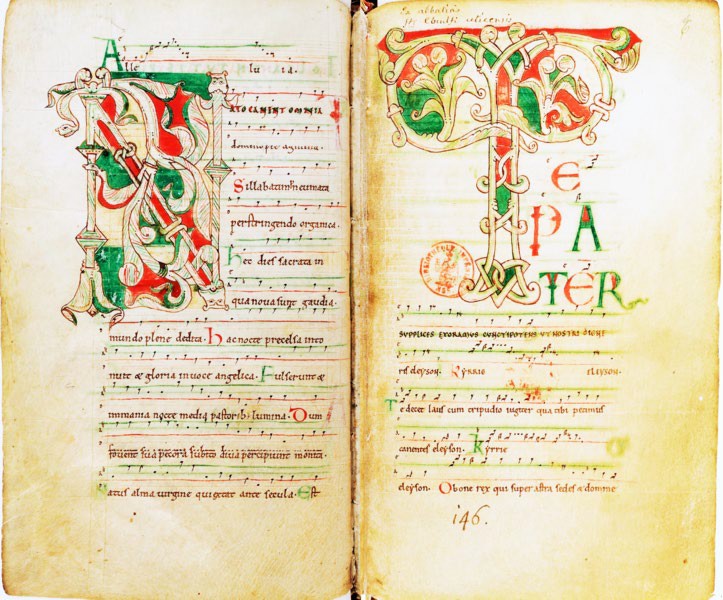 Alleluia.
NATO CANUNT OMNIA
domino pie agmina.
Sillabatim neumata
perstringendo organica.
hec dies sacrata in
qua nova sunt gaudia.
mundo plene dedita. hac nocte precelsa into
nuit & gloria in voce angelica. Fulserunt &
inmania nocte media pastorib; lumina. Dum
fovent sua pecora subito diva percipiunt monita.
Natus alma virgine qui extat ante secula. Est
TE
PA
TER
SUPPLICES EXORAMUS CUNCTIPOTENS UT NOSTRI DIGNE
ris eleyson. Kyrrie eleyson.
Te decet laus cum tripudio iugiter qua tibi petimus
canentes eleyson. Kyrrie
eleyson. O bone rex qui super astra sedes & domine
146.